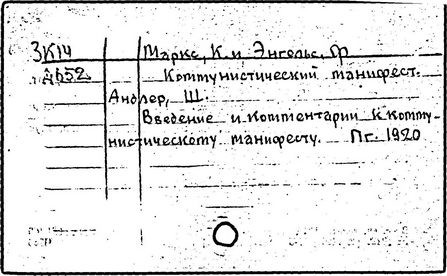 ЗК14 Маркс, К. и Энгельс, Ф
Д652 Коммунистический манифест.
Андлер, Ш.
Введение и комментарии к комму-
нистическому манифесту. Пг. 1920